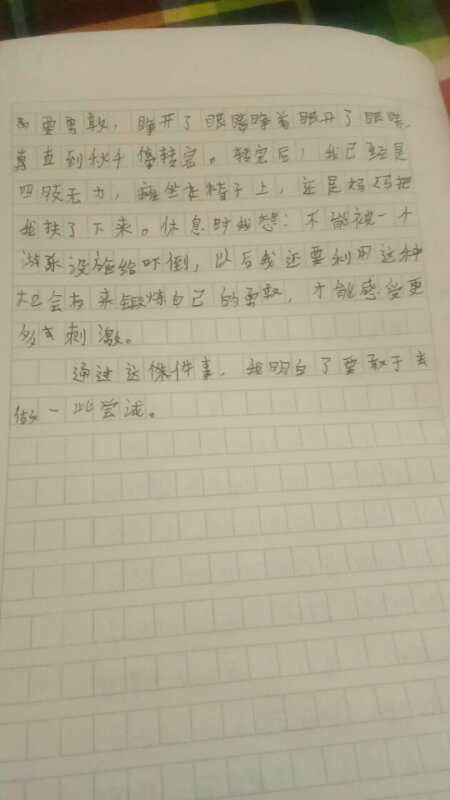 要勇敢，睁开了眼睛睁着眼开了眼睛
真直到秋千停转完。转完后，我已经是
四肢无力，瘫坐在椅子上，还是妈妈把
我扶了下来。休息时我想：不能被一个
游乐设施给吓倒，以后我还要利用这种
机会来锻炼自己的勇敢，才能感受更
多刺激。
通过这件事，我明白了要敢于去
做一些尝试。